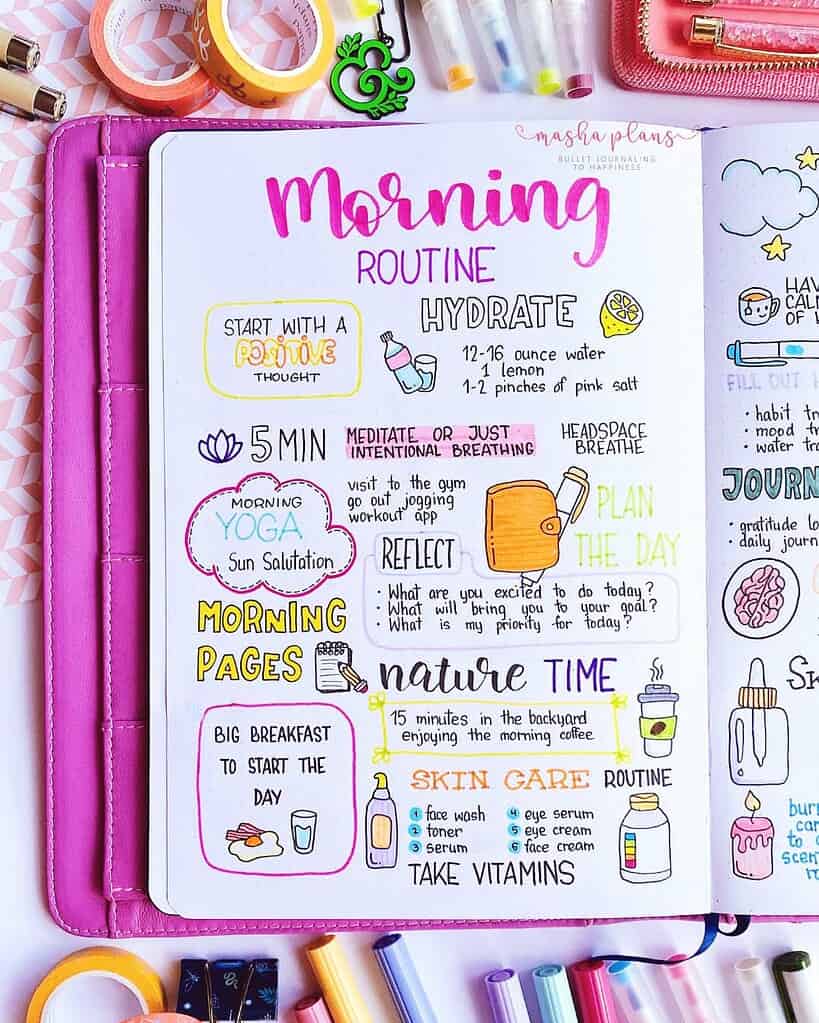 masha plans
BULLET JOURNALING
TO HAPPINESS
Morning
ROUTINE
START WITH A
POSITIVE
THOUGHT
HYDRATE
12-16 ounce water
1 lemon
1-2 pinches of pink salt
5 MIN
MEDITATE OR JUST
INTENTIONAL BREATHING
HEADSPACE
BREATHE
MORNING
YOGA
Sun Salutation
visit to the gym
go out jogging
workout app
PLAN
THE DAY
REFLECT
• What are you excited to do today?
• What will bring you to your goal?
• What is my priority for today?
MORNING
PAGES
nature TIME
15 minutes in the backyard
enjoying the morning coffee
BIG BREAKFAST
TO START THE
DAY
SKIN CARE ROUTINE
1 face wash
2 toner
3 serum
4 eye serum
5 eye cream
6 face cream
TAKE VITAMINS
OF
FILL OUT
• habit
• mood
• water
• gratitude
• daily
to